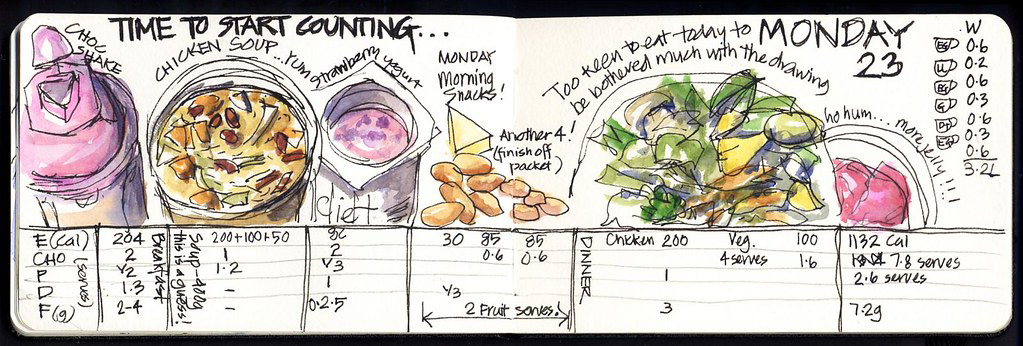 TIME TO START COUNTING...
MONDAY
23
CHOC
SHAKE
CHICKEN SOUP ...YUM
Strawberry yogurt
diet
MONDAY
Morning
Snacks!
Another 4!
(finish off
packet)
Too keen to eat today to
be bothered much with the drawing
ho hum... more jelly!!!
W
0.6
0.2
0.6
0.3
0.6
0.3
0.6
3.2L
E (Cal) 204 200+100+50 86 30 85 85 Chicken 200 Veg. 100 1132 Cal
CHO 2 1 2 0.6 0.6 4 serves 1.6 7.8 serves
P 1/2 1.2 1/3 1 2.6 serves
D 1.3 - 1 1/3
F (g) 2-4 - 0.2.5 2 Fruit serves! 3 7.2g
(serves)
Breakfast
Soup-400g
This is a guess!
DINNER